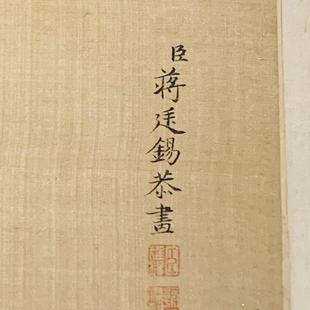 臣
蔣廷錫恭畫